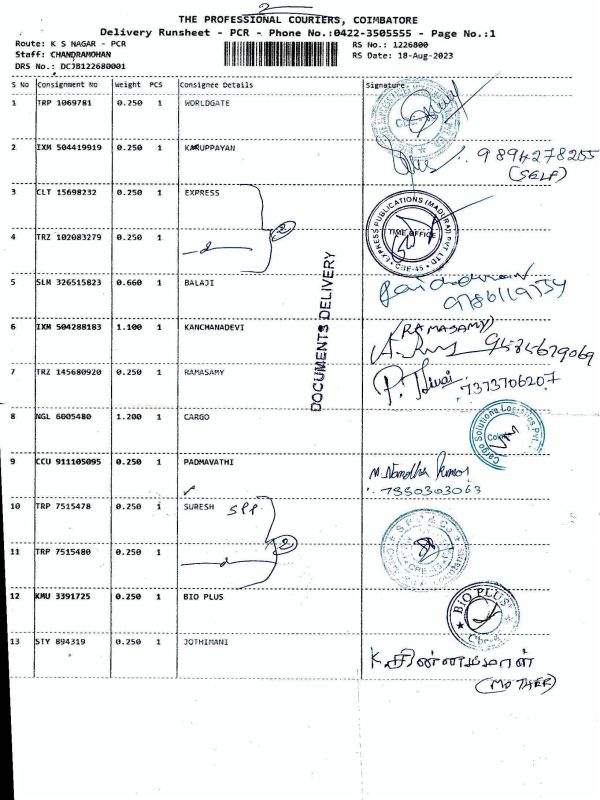 2
THE PROFESSIONAL COURIERS, COIMBATORE
Delivery Runsheet - PCR - Phone No.:0422-3505555 - Page No.:1
Route: K S NAGAR - PCR RS No.: 1226800
Staff: CHANDRAMOHAN RS Date: 18-Aug-2023
DRS No.: DCJB122680001
S No Consignment No Weight PCS Consignee Details Signature
1 TRP 1069781 0.250 1 WORLDGATE
2 IXM 504419919 0.250 1 KARUPPAYAN 9894278255
(SELF)
3 CLT 15698232 0.250 1 EXPRESS
EXPRESS PUBLICATIONS (MADURAI) PVT LTD
TIME OFFICE
CBE-45
4 TRZ 102083279 0.250 1 2
5 SLM 326515823 0.660 1 BALAJI
DOCUMENTS DELIVERY
6 IXM 504288183 1.100 1 KANCHANADEVI (RAMASAMY)
7 TRZ 145680920 0.250 1 RAMASAMY 7373706207
8 NGL 6005480 1.200 1 CARGO
Cargo Solutions Logistics Pvt.
9 CCU 911105095 0.250 1 PADMAVATHI
7550303063
10 TRP 7515478 0.250 1 SURESH SPP
11 TRP 7515480 0.250 1 2
12 KMU 3391725 0.250 1 BIO PLUS
BIO PLUS
13 STY 894319 0.250 1 JOTHIMANI
(MOTHER)